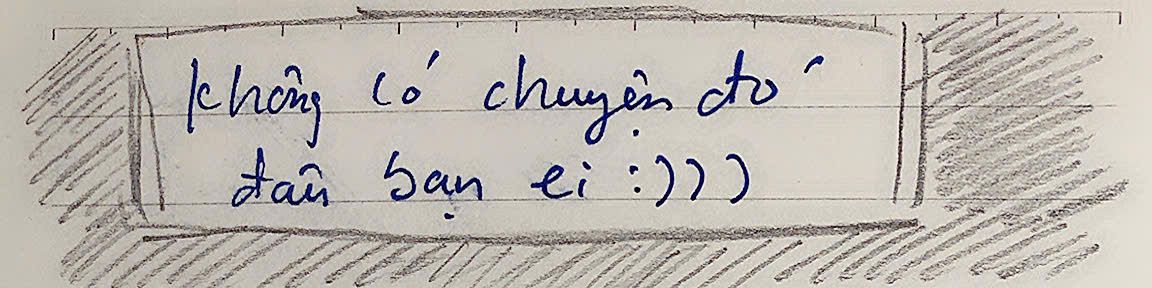 không có chuyện đó
đâu bạn ei :)))